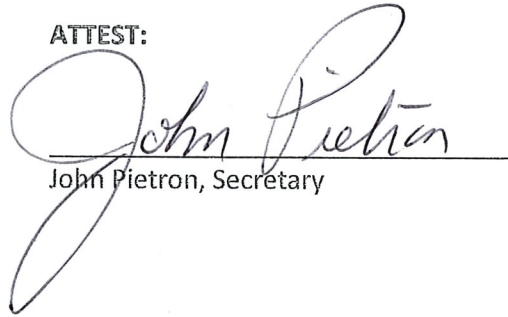 ATTEST:
John Pietron
John Pietron, Secretary